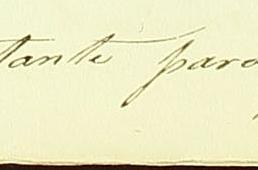 tante paro